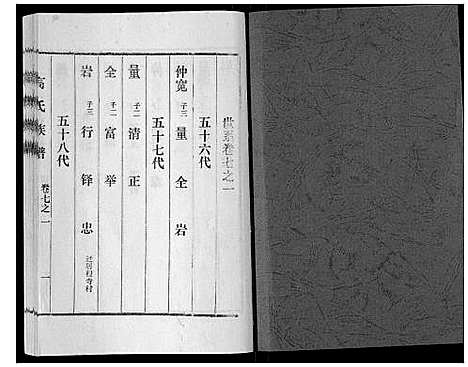 世系卷七之一
五十六代
仲宽 子三 量 全 岩
五十七代
量 子二 清 正
全 子二 富 举
岩 子三 行 铎 忠
五十八代
高氏族谱
卷七之一
一